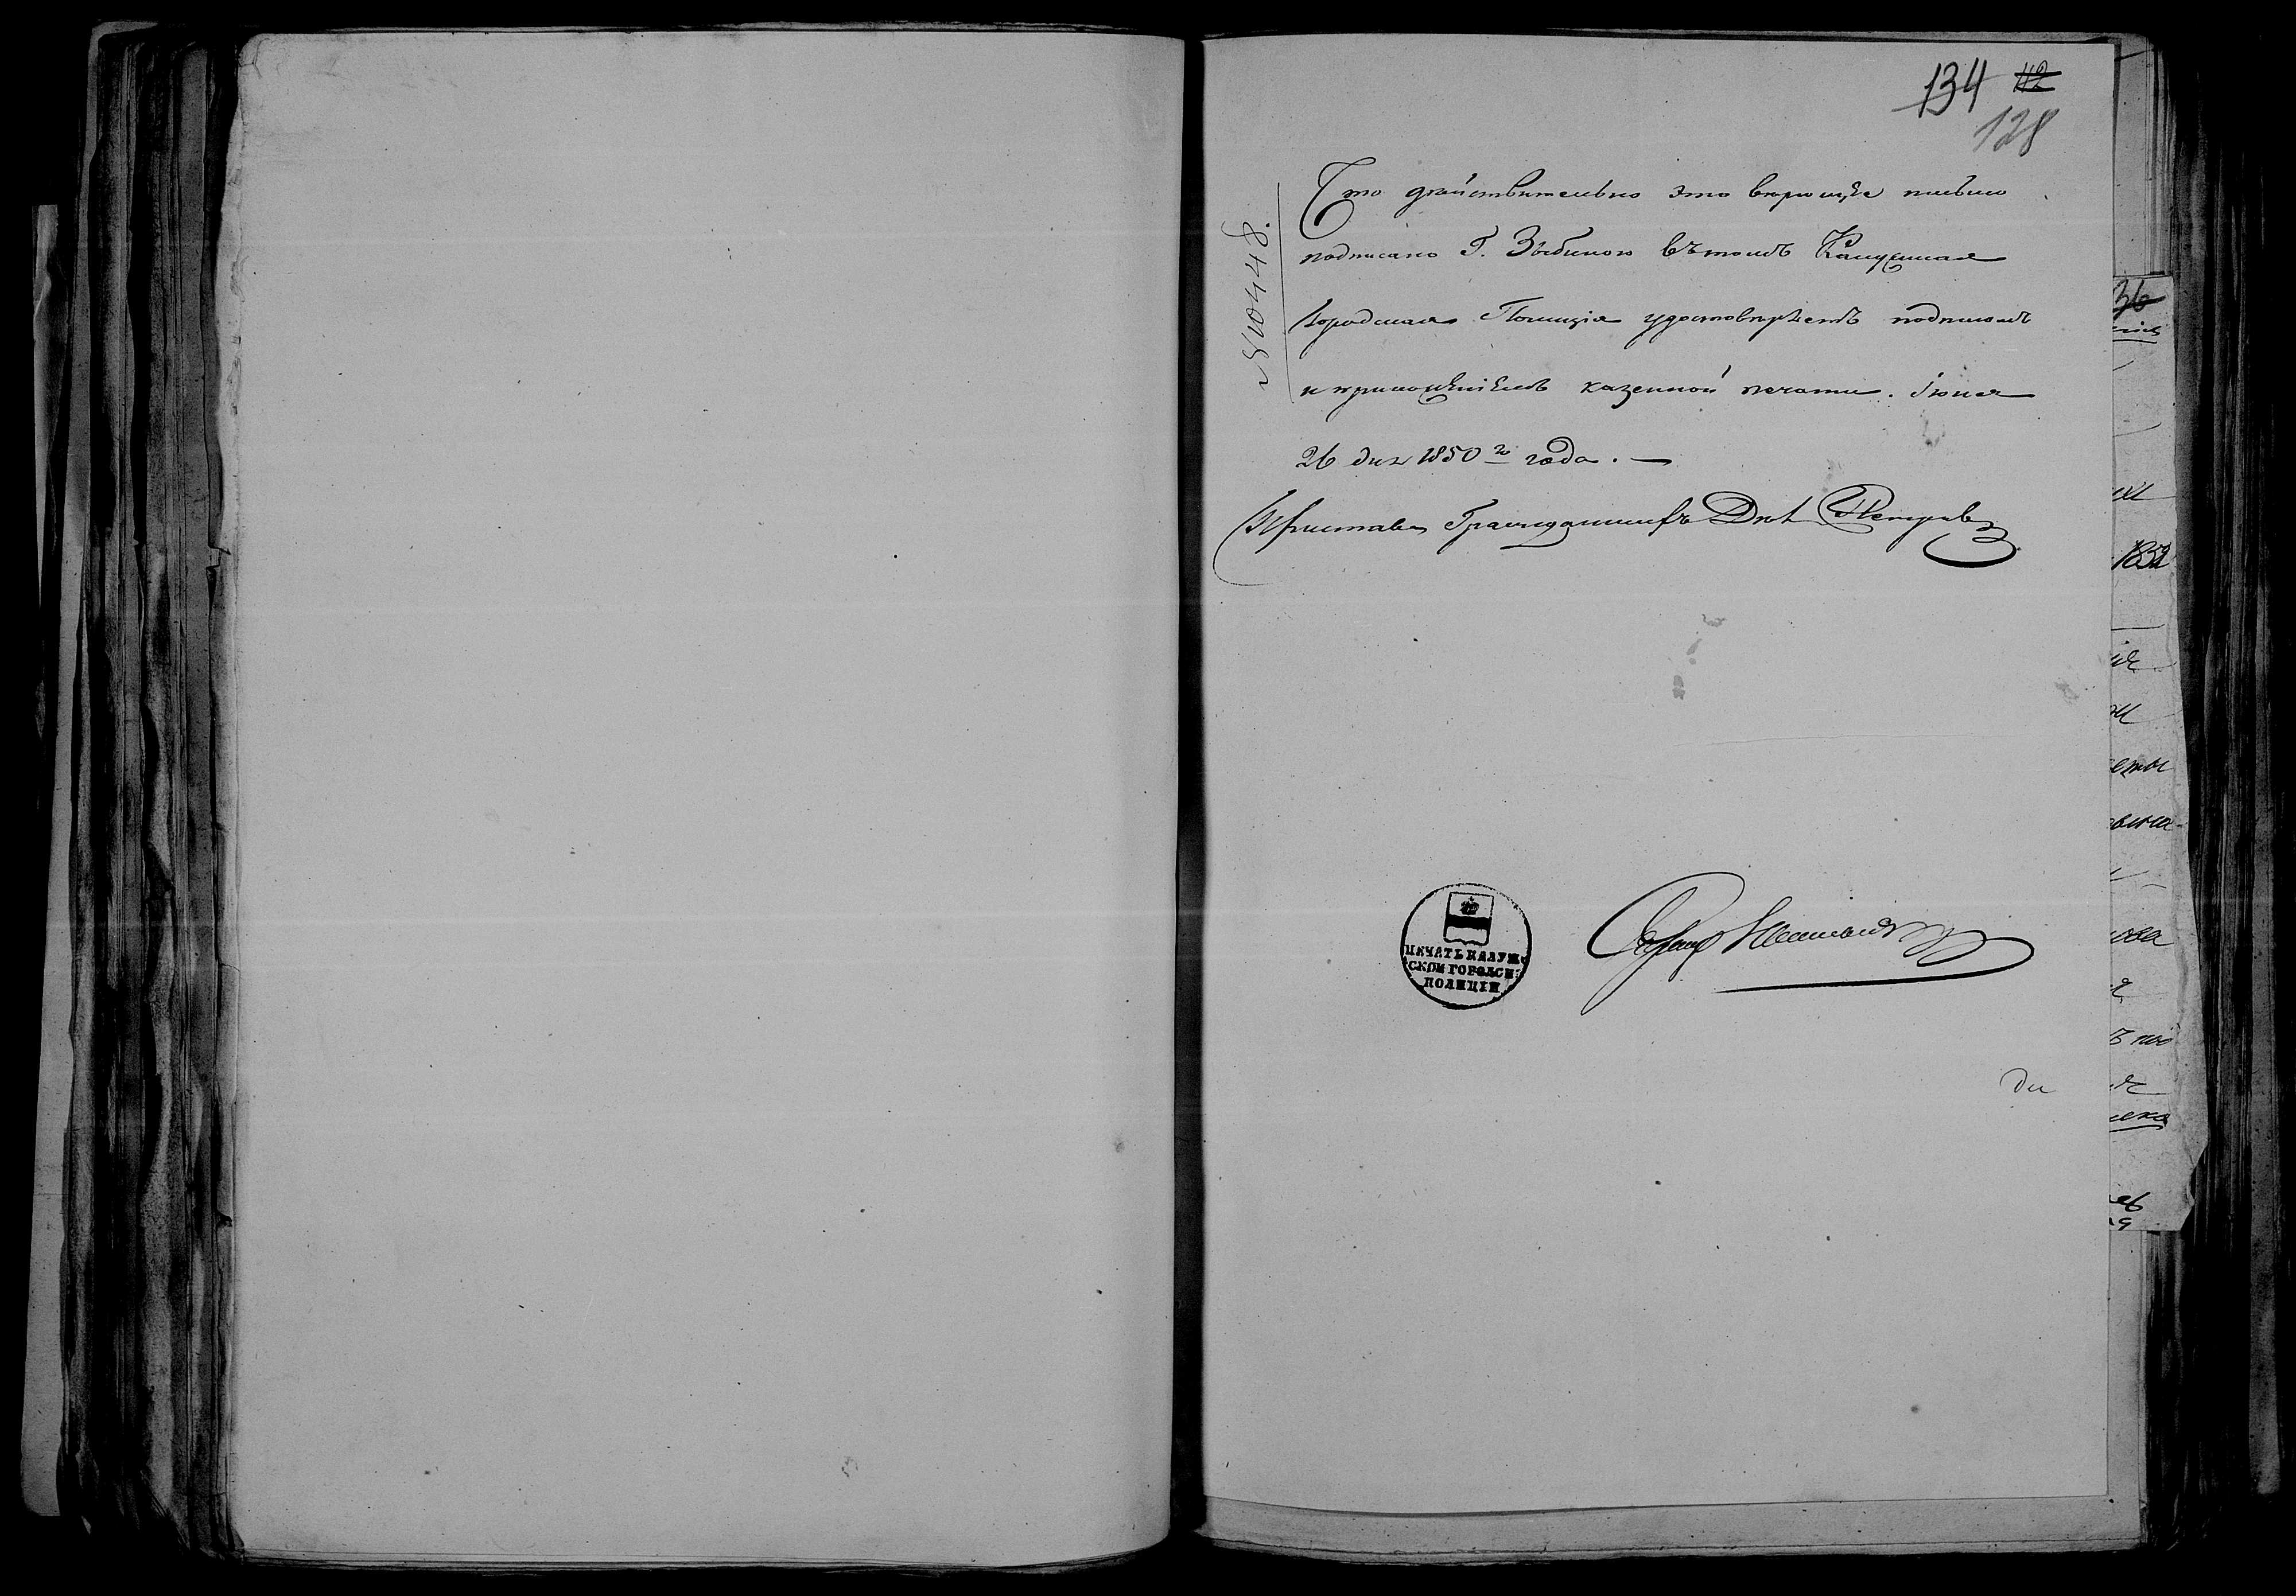 134 42
128
№ 10448.
Что действительно это вѣрющее письмо
подписано Г. Зыбиною въ томъ Калужская
Городская Полиція удостовѣряетъ подписомъ
и приложеніемъ казенной печати. Іюня
26 дня 1850 го года. —
Приставъ Гражданскихъ Дѣлъ Петровъ
ПЕЧАТЬ КАЛУЖ
СКОИ ГОРОДСК:
ПОЛИЦІИ
36
1852